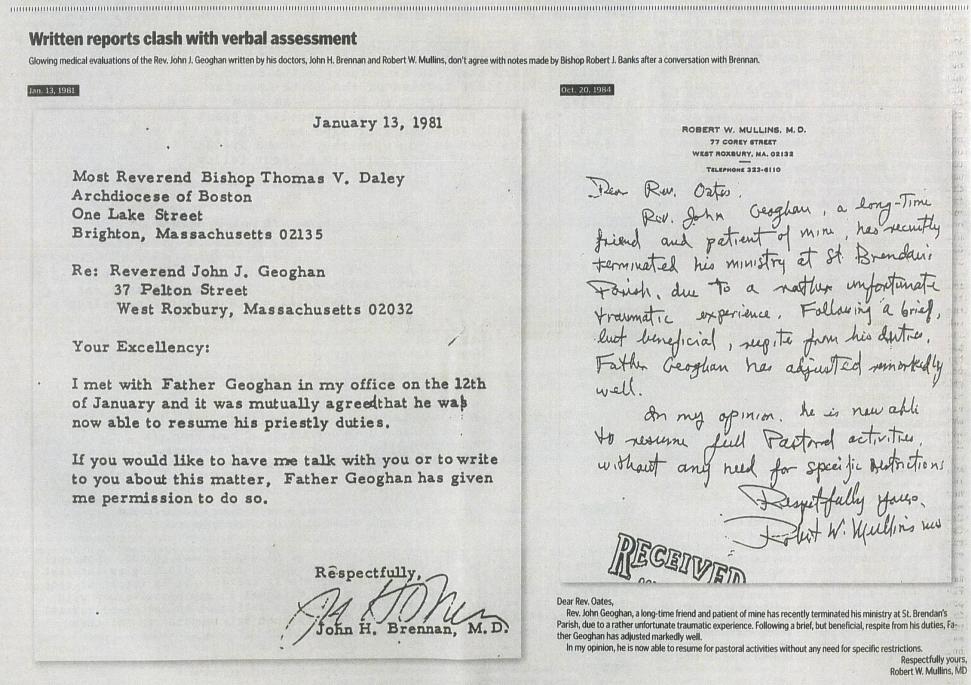 Written reports clash with verbal assessment
Glowing medical evaluations of the Rev. John J. Geoghan written by his doctors, John H. Brennan and Robert W. Mullins, don't agree with notes made by Bishop Robert J. Banks after a conversation with Brennan.
Jan. 13, 1981
January 13, 1981
Most Reverend Bishop Thomas V. Daley
Archdiocese of Boston
One Lake Street
Brighton, Massachusetts 02135
Re: Reverend John J. Geoghan
37 Pelton Street
West Roxbury, Massachusetts 02032
Your Excellency:
I met with Father Geoghan in my office on the 12th
of January and it was mutually agreed that he was
now able to resume his priestly duties.
If you would like to have me talk with you or to write
to you about this matter, Father Geoghan has given
me permission to do so.
Respectfully,
John H. Brennan, M.D.
Oct. 20, 1984
ROBERT W. MULLINS, M. D.
77 COREY STREET
WEST ROXBURY, MA. 02132
TELEPHONE 323-6110
Dear Rev. Oates.
Rev. John Geoghan, a long-Time
friend and patient of mine, has recently
terminated his ministry at St. Brendan's
Parish, due to a rather unfortunate
traumatic experience. Following a brief,
but beneficial, respite from his duties,
Father Geoghan has adjusted remarkedly
well.
In my opinion, he is now able
to resume full Pastoral activities,
without any need for specific restrictions
Respectfully yours,
Robert W. Mullins MD
RECEIVED
Dear Rev. Oates,
Rev. John Geoghan, a long-time friend and patient of mine has recently terminated his ministry at St. Brendan's
Parish, due to a rather unfortunate traumatic experience. Following a brief, but beneficial, respite from his duties, Fa-
ther Geoghan has adjusted markedly well.
In my opinion, he is now able to resume for pastoral activities without any need for specific restrictions.
Respectfully yours,
Robert W. Mullins, MD